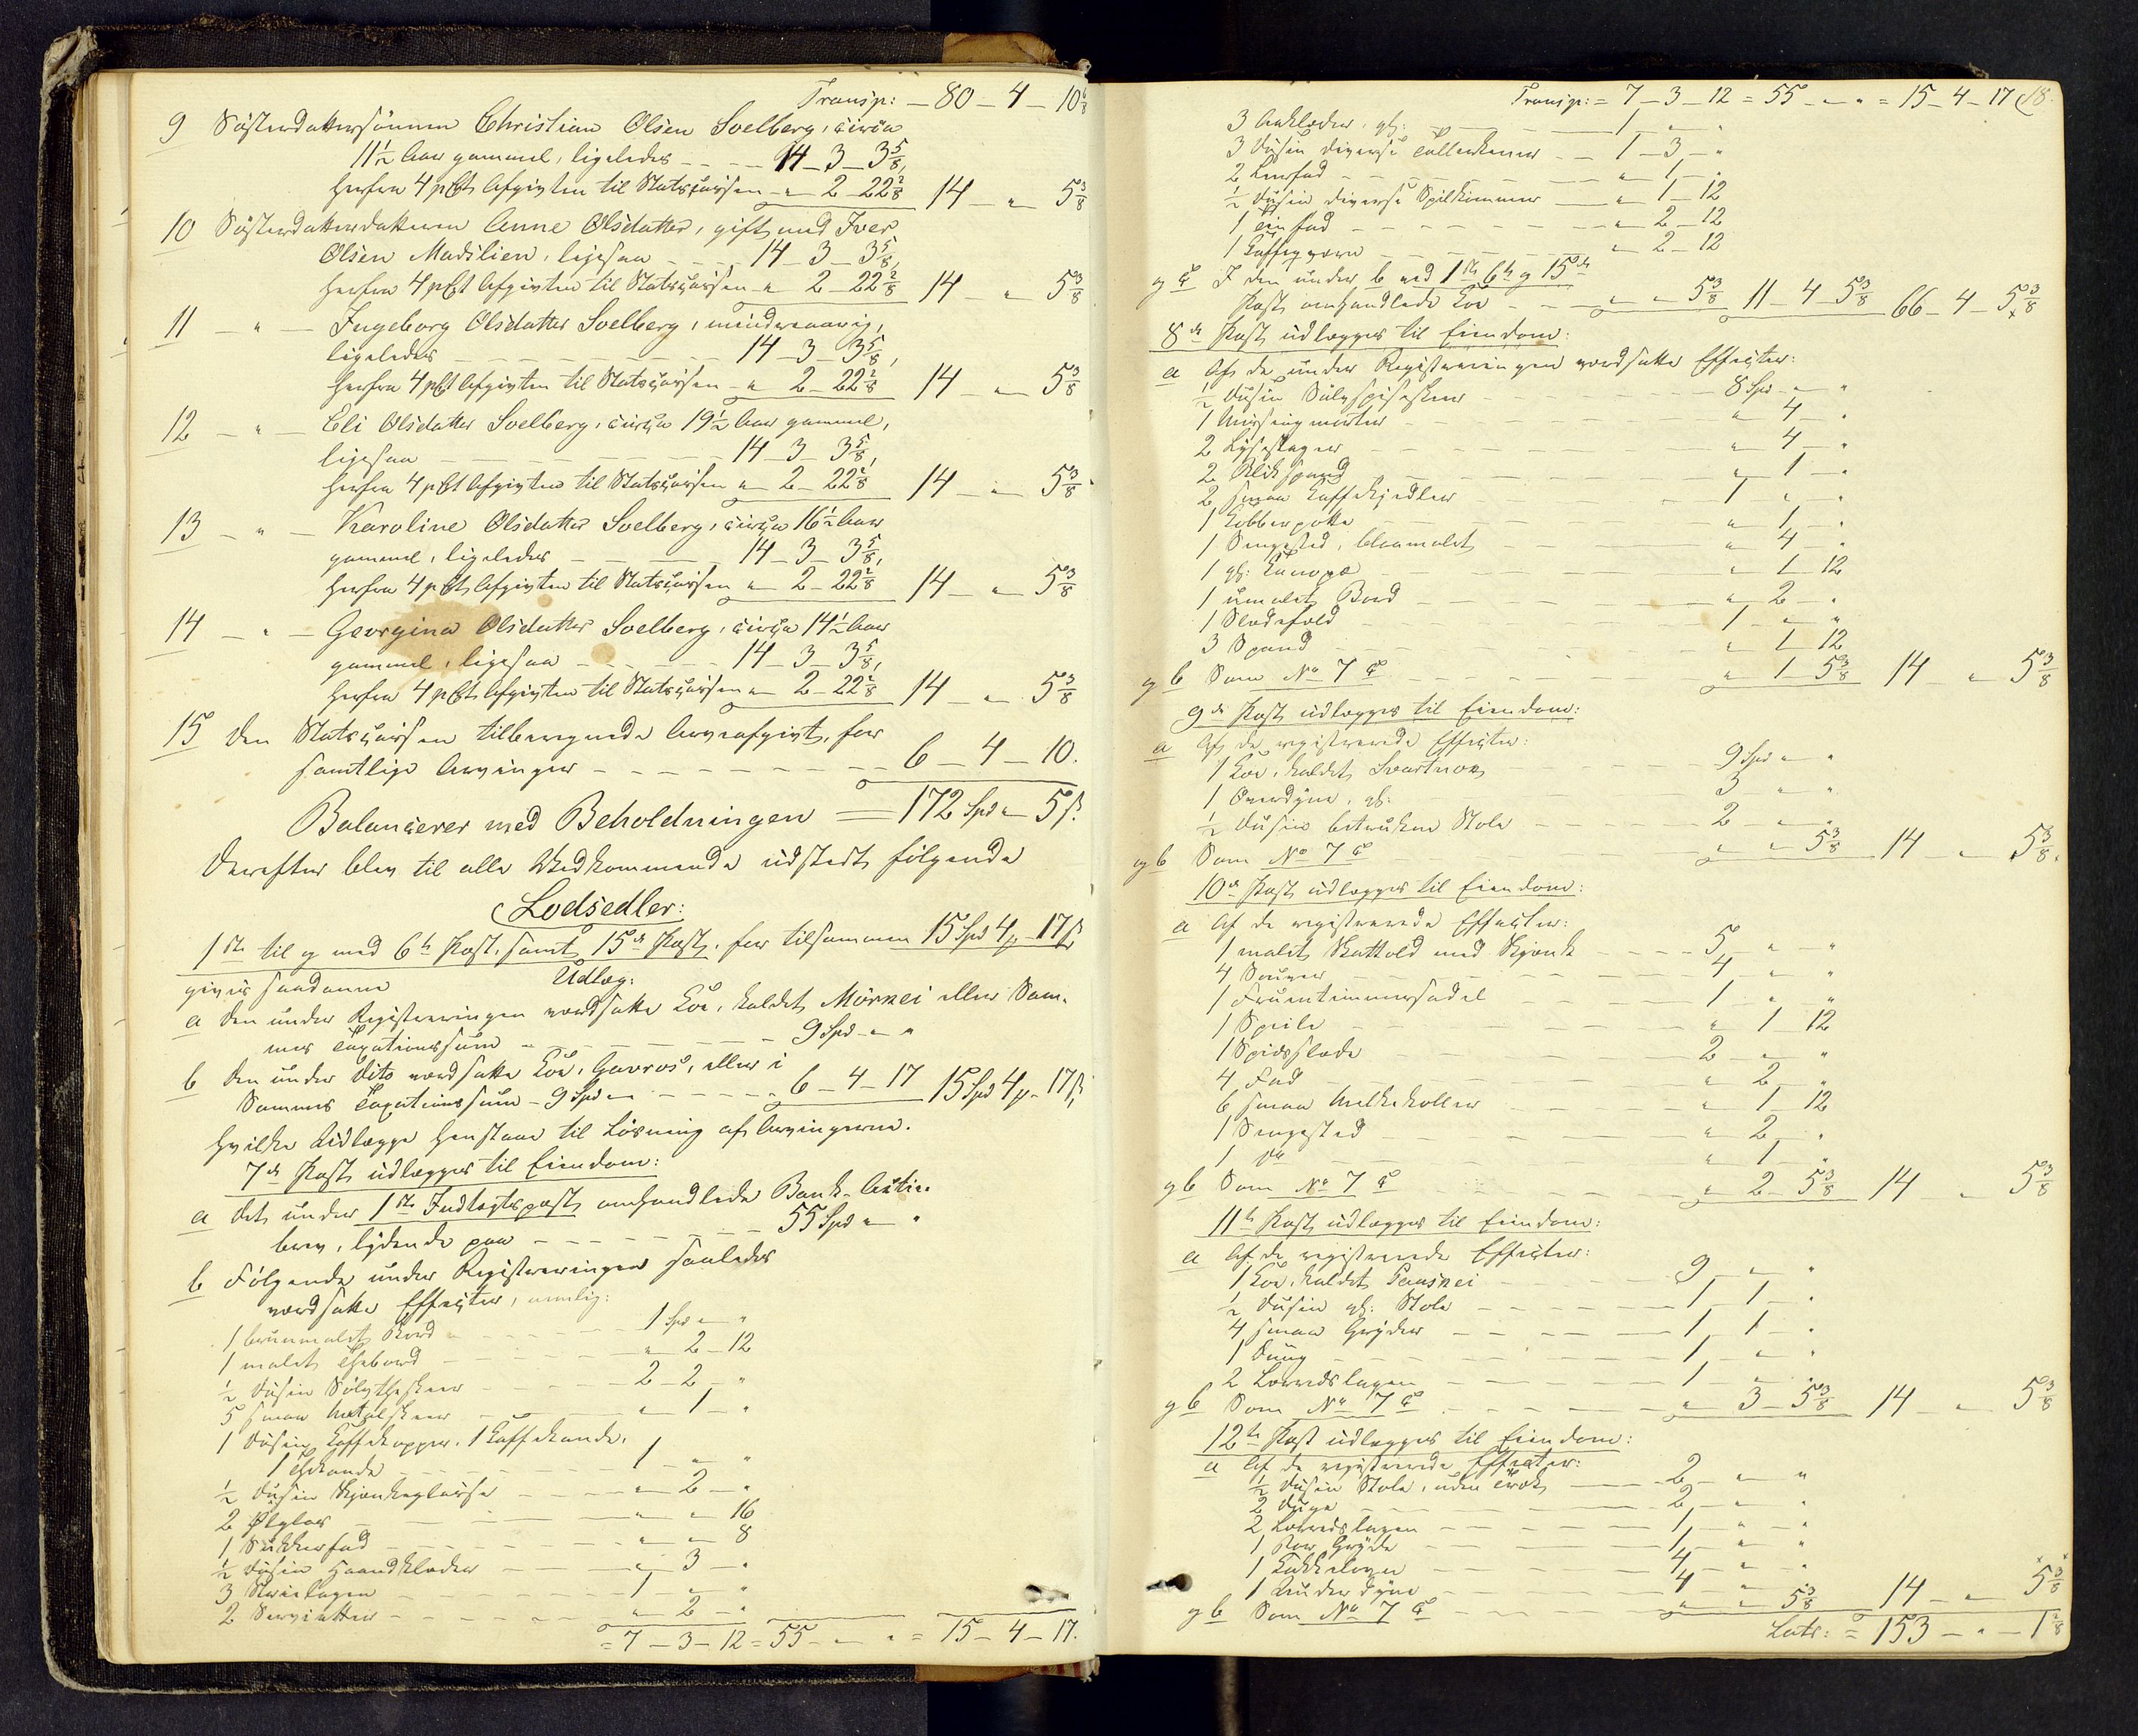 Transp: – 80 – 4 – 10 6/8
9 Søsterdattersønnen Christian Olsen Soelberg, circa
11½ Aar gammel, ligeledes – – 14 – 3 – 3 5/8,
herfra 4 pCt Afgivten til Statscassen – " 2 – 22 2/8 14 – " – 5 3/8
10 Søsterdatterdatteren Anne Olsdatter, gift med Iver
Olsen Madslien, ligesaa – – – 14 – 3 – 3 5/8,
herfra 4 pCt Afgivten til Statscassen – " 2 – 22 2/8 14 – " – 5 3/8
11 – " – Ingeborg Olsdatter Soelberg, mindreaarig,
ligeledes – – – 14 – 3 – 3 5/8,
herfra 4 pCt Afgivten til Statscassen – " 2 – 22 2/8 14 – " – 5 3/8
12 – " – Eli Olsdatter Soelberg, circa 19½ Aar gammel,
ligesaa – – – 14 – 3 – 3 5/8,
herfra 4 pCt Afgivten til Statscassen " – 2 – 22 2/8 14 – " – 5 3/8
13 – " – Karoline Olsdatter Soelberg, circa 16½ Aar
gammel, ligeledes – – – 14 – 3 – 3 5/8,
herfra 4 pCt Afgivten til Statscassen " – 2 – 22 2/8 14 – " – 5 3/8
14 – " – Georgina Olsdatter Soelberg, circa 14½ Aar
gammel, ligesaa – – – 14 – 3 – 3 5/8,
herfra 4 pCt Afgivten til Statscassen " – 2 – 22 2/8 14 – " – 5 3/8
15 Den Statscassen tilberegnede Arveafgivt, for
samtlige Arvinger – – – 6 – 4 – 10.
Balancerer med Beholdningen = 172 Spd " 5 ß.
Derefter blev til alle Vedkommende udstedt følgende
Lodsedler:
1ste til og med 6te Post, samt 15de Post, for tilsammen 15 Spd 4 – 17 ß
gives saadanne Udlæg:
a Den under Registreringen vurdsatte Koe, kaldet Mørkei eller Sam-
mes Taxationssum – – – 9 Spd – "
b Den under Dito vurdsatte Koe, Gavros, eller i
Sammes Taxationssum – 9 Spd – – – 6 – 4 – 17 15 Spd 4 – 17 ß,
hvilke Udlægge henstaae til Løsning af Arvingerne.
7de Post udlægges til Eiendom:
a Det under 1ste Indtægtspost omhandlede Bank-Actie-
brev, lydende paa – – – 55 Spd – "
b Følgende under Registreringen saaledes
vurdsatte Effecter, nemlig:
1 bruunmalet Bord – – – 1 Spd – "
1 malet Thebord – – – " 2 – 12
½ Dusin Sølvtheskeer – – – 2 – 2 – "
5 smaa Metalskeer – – – " – 1 – "
1 Dusin Kaffekopper, 1 Kaffekande,
1 Thekande – – – 1 – " – "
½ Dusin Skjænkeglasse – – – " – 2 – "
2 Ølglas – – – " – " – 16
1 Sukkerfad – – – " – " – 8
½ Dusin Haandklæder – – – " – 3 – "
3 Strielagen – – – 1 – " – "
2 Servietter – – – " – 2 – "
= 7 – 3 – 12 = 55 – " – " = 15 – 4 – 17.
Transp: = 7 – 3 – 12 = 55 – " – " = 15 – 4 – 17 18.
3 Aaklæder, gl: – – – 1 – " – "
3 Dusin diverse Tallerkener – – 1 – 3 – "
2 Leerfad – – – " – 1 – "
½ Dusin diverse Spilkommer – " – 1 – 12
1 Tinfad – – – " – 2 – 12
1 Kaffeqværn – – – " – 2 – 12
og c I den under b ved 1ste 6te og 15de
Post omhandlede Koe – – – " – " – 5 3/8 11 – 4 – 5 3/8 66 – 4 – 5 3/8
8de Post udlægges til Eiendom:
a Af de under Registreringen vurdsatte Effecter:
½ Dusin Sølvspiseskeer – – – 8 Spd – "
1 Messingmorter – – – " 4 – "
2 Lysestager – – – " 4 – "
2 Blikspand – – – " 1 – "
2 smaa Kaffekjedler – – – 1 " – "
1 Kobberpotte – – – " 1 – "
1 Sengested, blaamalet – – – " 4 – "
1 gl: Kanape – – – " – 1 – 12
1 umalet Bord – – – " – 2 – "
1 Sladefold – – – 1 – " – "
3 Spand – – – " 1 – 12
og b Som No 7 c – – – " – 1 – 5 3/8 14 – " – 5 3/8
9de Post udlægges til Eiendom:
a Af de registrerede Effecter:
1 Koe, kaldet Svartrok – – – 9 Spd – "
1 Overdyne, gl: – – – 3 " – "
½ Dusin betrukne Stole – – – 2 – " – "
og b Som No 7 c – – – " – " 5 3/8 14 – " – 5 3/8.
10de Post udlægges til Eiendom:
a Af de registrerede Effecter:
1 malet Skattold med Skjænk – – – 5 – " – "
4 Sauer – – – 4 – " – "
1 Fruentimmersadel – – – 1 – " – "
1 Speile – – – " – 1 – 12
1 Spidsslæde – – – 2 – " – "
4 Fad – – – " – 2 – "
6 smaa Melkekoller – – – " – 1 – 12
1 Sengested – – – " – 2 – "
1 do – – – " – 1 – "
og b Som No 7 c – – – " – 2 – 5 3/8 14 – " – 5 3/8
11te Post udlægges til Eiendom:
a Af de registrerede Effecter:
1 Koe, kaldet – – – 9 – " – "
½ Dusin gl: Stole – – – 1 – 1 – "
4 smaa Gryder – – – 1 – 1 – "
1 Duug – – – 1 – " – "
2 Lærredslagen – – – 1 – " – "
og b Som No 7 c – – – " – 3 – 5 3/8 14 – " – 5 3/8
12te Post udlægges til Eiendom:
a Af de registrerede Effecter:
½ Dusin Stole, uden Træk – – – 2 – " – "
2 Duge – – – 2 – " – "
2 Lærredslagen – – – 1 – " – "
1 stor Gryde – – – 1 – " – "
1 Kakkelovn – – – 4 – " – "
1 Underdyne – – – 4 – " – "
og b Som No 7 c – – – " – " 5 3/8 14 – " – 5 3/8
Lats: = 153 – " – 1 2/8